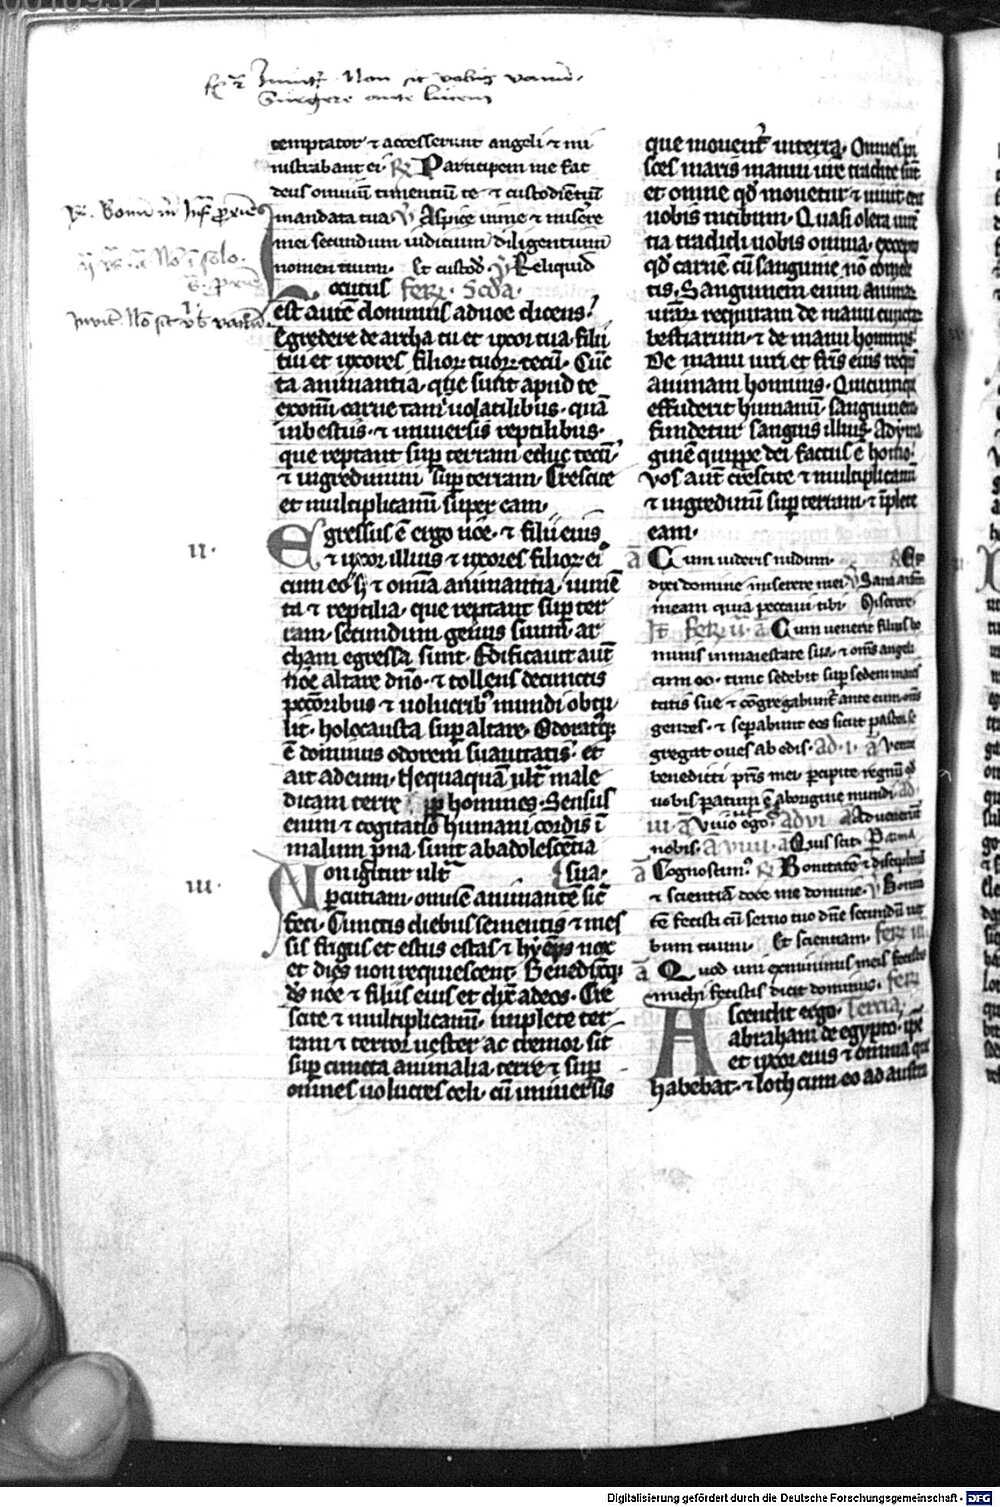 Inuit. Non sit vobis vanu.
Surgere ante lucem
temptator ⁊ accesserunt angeli ⁊ mi
nistrabant ei. ℟ Participem me fac
deus omnium timentium te ⁊ custodientiū
mandata tua ℣ Aspice in me ⁊ misere
mei secundum iudicium diligentium
nomen tuum. Et custod. ℣ Reliquid
Locutus Feria. Scda.
est autē dominus ad noe dicens.
Egredere de archa tu et uxor tua. filii
tui et uxores filior tuor tecū. Cūc
ta animantia. que sunt apud te
ex omī carne tam uolatilibus. quā
in bestiis. ⁊ uniuersis reptilibus.
que reptant sup terram educ tecū
⁊ ingredimini sup terram. Crescite
et multiplicamī super eam.
II.
Egressus ē ergo noe. ⁊ filii eius
⁊ uxor illius ⁊ uxores filior ei
cum eo. Sʒ ⁊ omnia animantia. iumē
ta ⁊ reptilia. que reptant sup ter
ram. secundum genus suum. ar
cham egressa sunt. Edificauit aut
noe altare dno. ⁊ tollens de cunctis
pecoribus ⁊ uolucrib mundi obtu
lit. holocausta sup altare. Odoratqʒ
ē dominus odorem suauitatis. et
ait ad eum. Nequaquā ult male
dicam terre pp homines. Sensus
enim ⁊ cogitatio humani cordis ī
malum prona sunt ab adolescētia
III.
Non igitur ult sua.
percutiam. omnē animantē sic
feci. Cunctis diebus sementis ⁊ mes
sis frigus et estus estas ⁊ hyeps nox
et dies non requiescent. Benedixitqʒ
ds noe ⁊ filiis eius et dix ad eos. Cre
scite ⁊ multiplicamī. implete ter
ram ⁊ terror uester ac tremor sit
sup cuncta animalia terre ⁊ sup
omnes uolucres celi. cū uniuersis
que mouent in terra. Omnes pi
sces maris manui ure traditi sūt
et omne qd mouetur ⁊ uiuit erit
uobis in cibum. Quasi olera uirē
tia tradidi uobis omnia. excepto
qd carnē cū sanguine nō comede
tis. Sanguinem enim animar
urar requiram de manu cunctar
bestiarum. ⁊ de manu hominis.
De manu uiri et fris eius reqri
animam hominis. Quicumqʒ
effuderit humanū. sanguinem
fundetur sanguis illius. Ad yma
ginē quippe dei factus ē homo.
Vos aut crescite ⁊ multiplicamī
⁊ ingredimī sup terram. ⁊ īplete
eam.
a Cum uideris nudum. ℟ Ego
dixi domine miserere mei ℣ Sana animā
meam quia peccaui tibi. Miserere.
Feria ii. a Cum uenerit filius ho
minis in maiestate sua. ⁊ oms angeli
cum eo. tunc sedebit sup sedem maies
tatis sue ⁊ congregabunt ante eum oms
gentes. ⁊ sepabunt eos sicut pastor se
gregat oues ab edis. ad. i. a Venite
benedicti pris mei. percipite regnū qd
uobis paratum ē ab origine mundi. ad
iii. a Viuo ego. ad VI. a Aduenerunt
nobis. a viiii. a Quis scit.
a Cognoscim. ℟ Bonitatē ⁊ disciplinā
⁊ scientiā doce me domine. ℣ Bonita
tē fecisti cū seruo tuo dne secundū uer
bum tuum. Et scientiam. Feria iii.
a Quod uni ex minimis meis fecistis
michi fecistis dicit dominus. Feria
Ascendit ergo. Tercia.
abraham de egypto. ipe
et uxor eius ⁊ omnia que
habebat. ⁊ loth cum eo ad austra
Digitalisierung gefördert durch die Deutsche Forschungsgemeinschaft - DFG